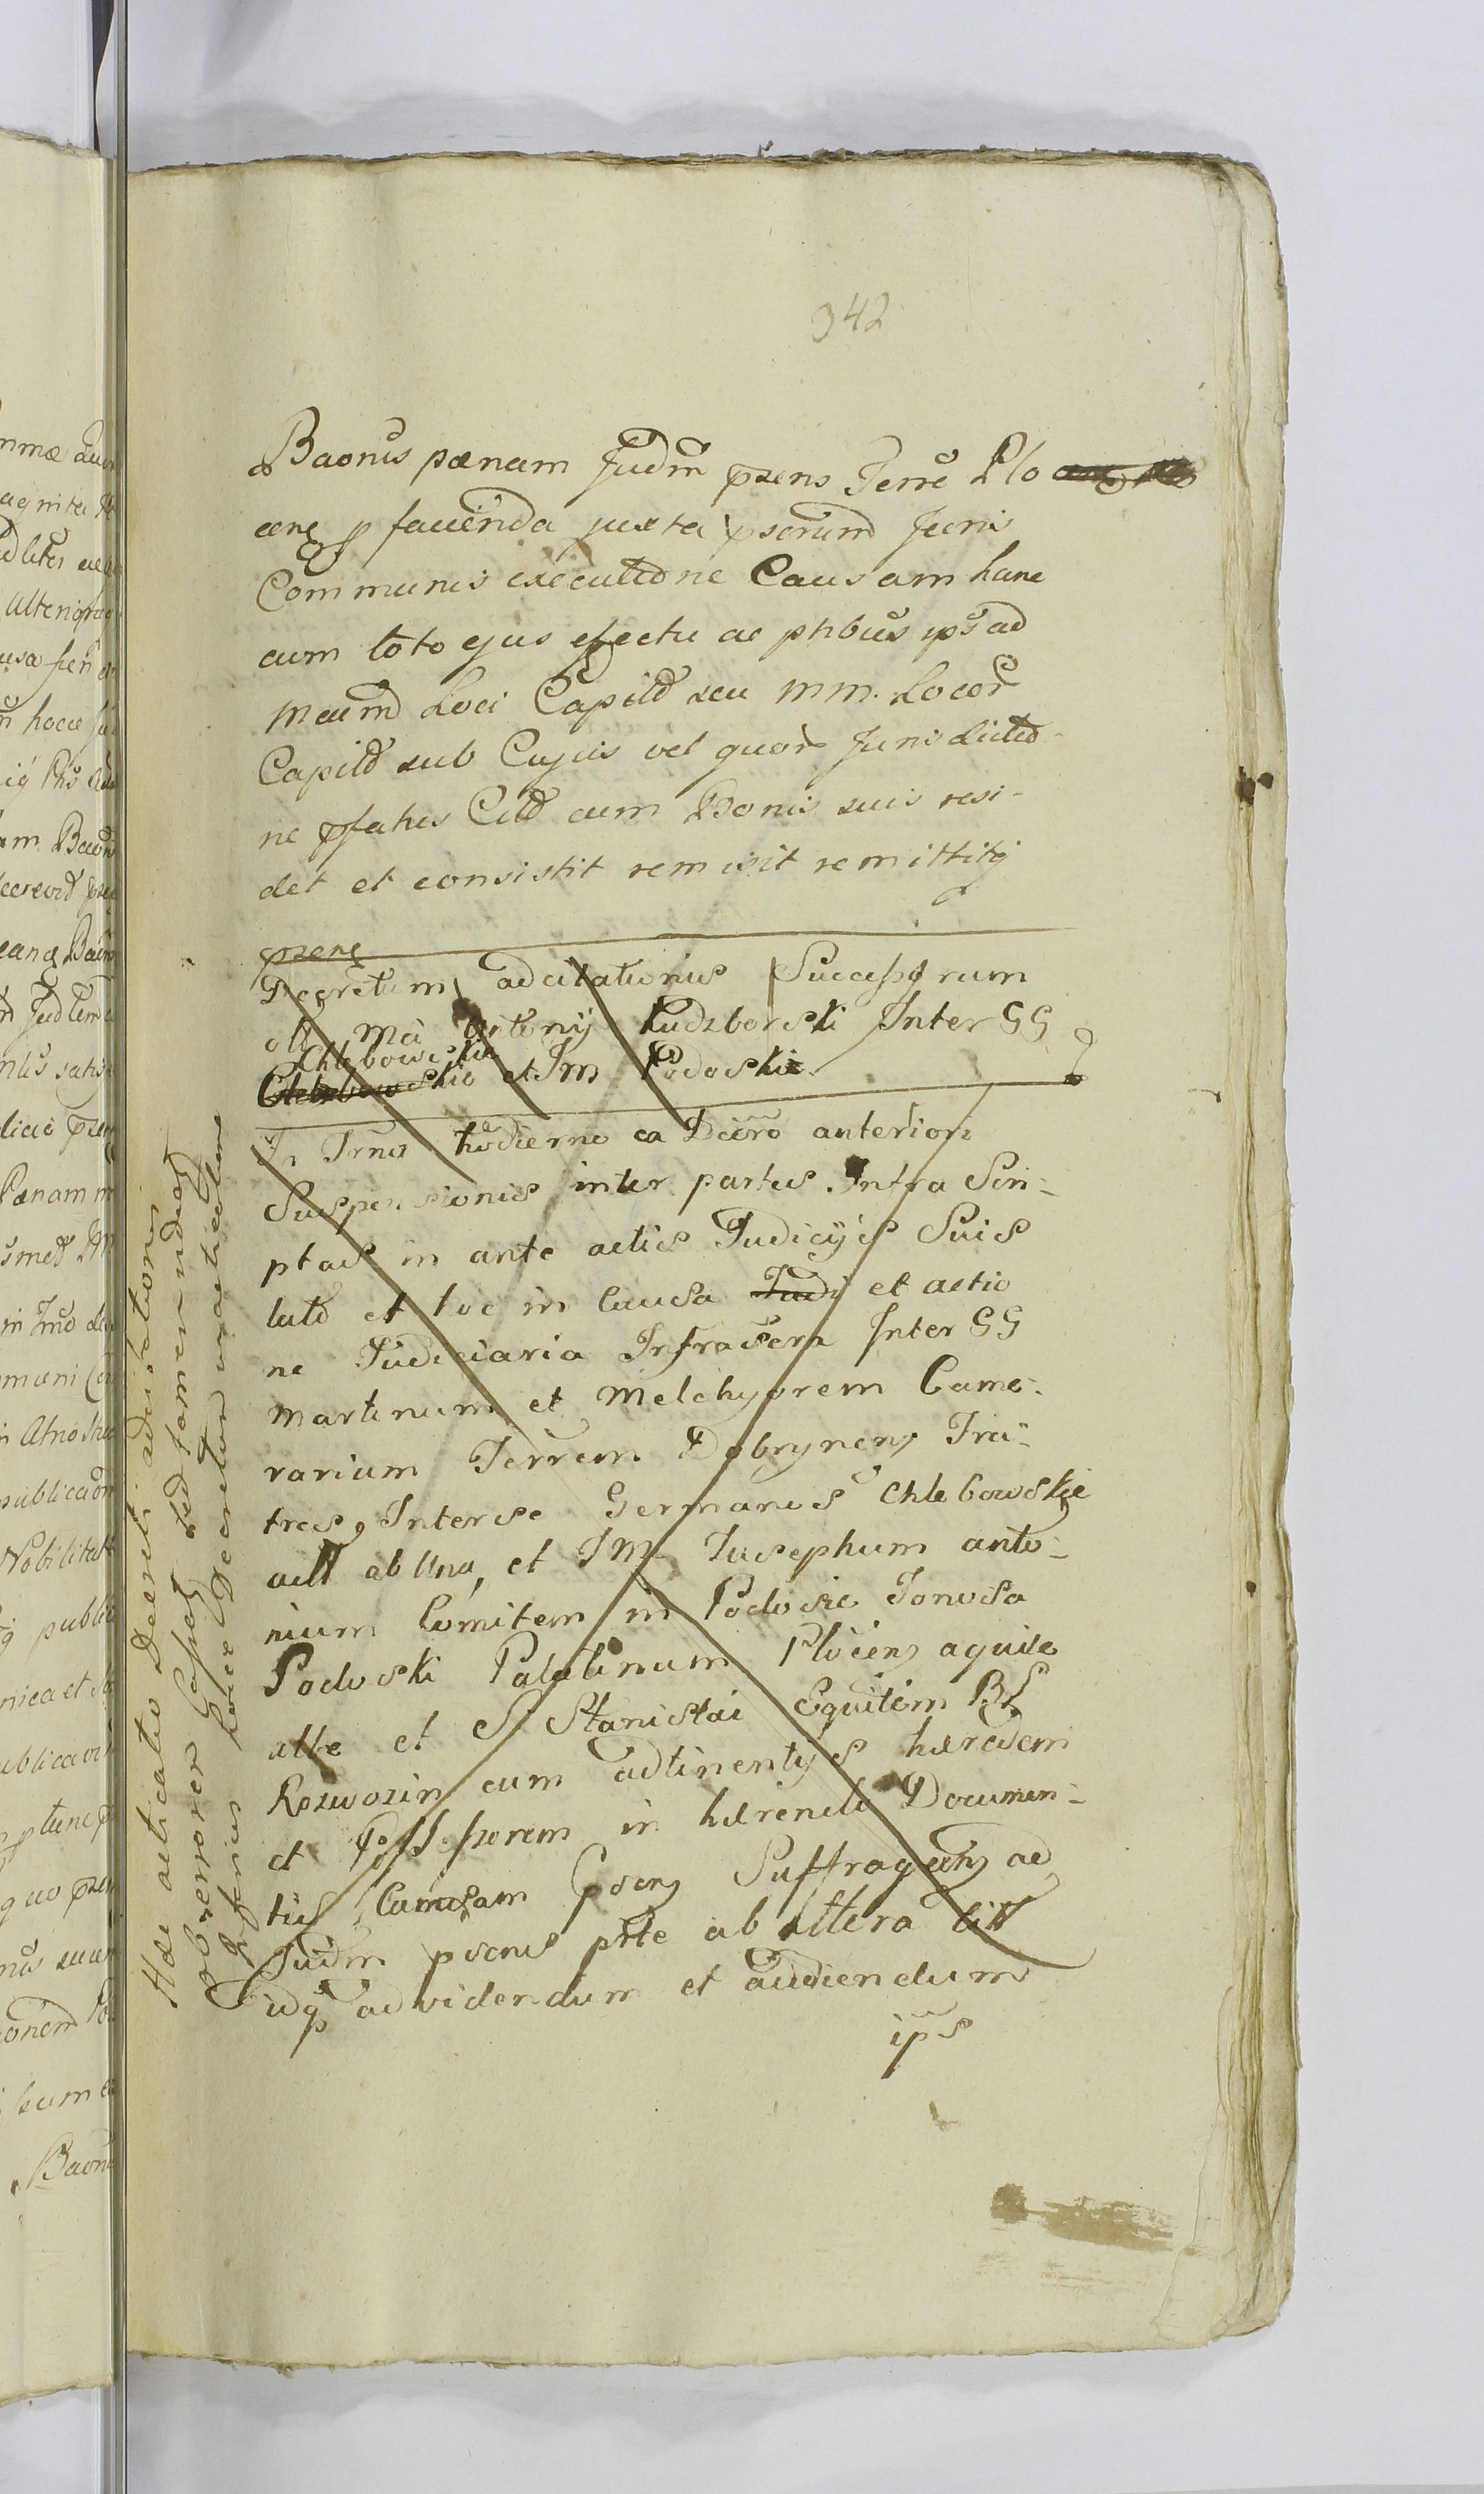 342
Baonis pænam Judm przens Terre Plo
cens p favenda juxta psorum Juris
Communis executione Causam hanc
cum toto ejus efectu ac ptibus ips ad
meum Loci Capitl seu mm. Locor
Capitl sub Cujus vel quor Jurisdictio-
ne pfatus Citt cum Bonis suis resi-
det et consistit remisit remittitq
przens
Decretum adcitationis Successorum
olim Mci Antonij Ludzborski Inter GG
Chlebowskie
Chlebowskie et Im Podoskie
In Trno hodierno ea Dcero anteriori
Suspensionis inter partes Infra Scri-
ptas in ante actis Judicijs Suis
lato et loc in Causa Judi et actio
ne Judiciaria Infrascrn Inter GG
Martinum et Melchyorem Came-
rarium Terrem Dobrynens Fra-
tres Interse Germanos Chlebowskie
actt ab Una, et IM Josephum anto-
nium Comitem in Podosie Jonosa
Podoski Palatinum Plocens aquile
albe et S Stanislai Equitem BL
Rozwozin cum adtinentys hæredem
et Possessorem in hærendo Documen-
tis Camosam psens Suffragans ad
Judm psens pte ab altera Citt
idq ad videndum et audiendum
ips
Hæ acticatio Decreti adcitationis
observatur Capet sed tamen videas
Inferius hocce Decretum inacticatum